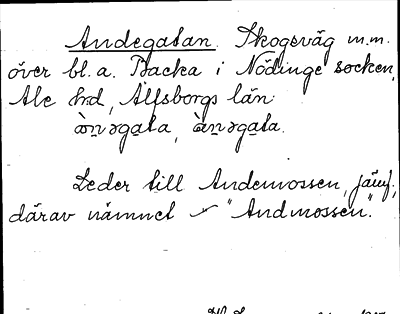 Andegatan. Skogsväg m.m.
över bl. a. Backa i Nödinge socken,
Ale hd, Älfsborgs län.
ànəgata, ànəgata.
Leder till Andemossen, jämf.,
därav nämnet "Andmossen".